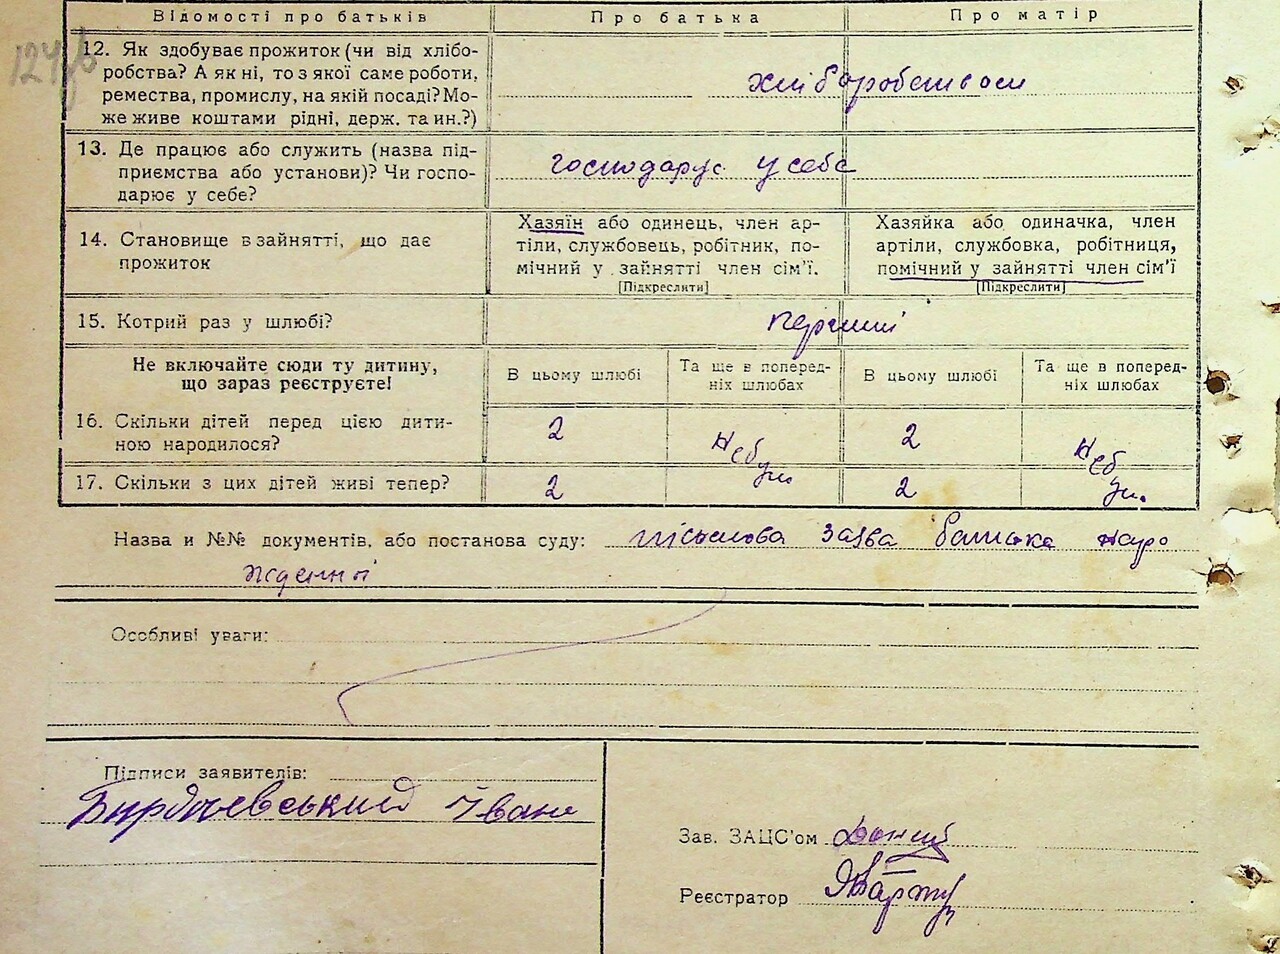 Відомості про батьків Про батька Про матір
12. Як здобуває прожиток (чи від хлібо-
робства? А як ні, то з якої саме роботи,
ремества, промислу, на якій посаді? Мо-
же живе коштами рідні, держ. та ин.?)
хліборобством
13. Де працює або служить (назва під-
приємства або установи)? Чи госпо-
дарює у себе?
господарує у себе
14. Становище в зайнятті, що дає
прожиток
Хазяїн або одинець, член ар-
тіли, службовець, робітник, по-
мічний у зайнятті член сім'ї.
[Підкреслити]
Хазяйка або одиначка, член
артіли, службовка, робітниця,
помічний у зайнятті член сім'ї
[Підкреслити]
15. Котрий раз у шлюбі? перший
Не включайте сюди ту дитину,
що зараз реєструєте!
В цьому шлюбі
Та ще в поперед-
ніх шлюбах
В цьому шлюбі
Та ще в поперед-
ніх шлюбах
16. Скільки дітей перед цією дити-
ною народилося?
2 2
17. Скільки з цих дітей живі тепер?
2 2
Назва и №№ документів, або постанова суду: письмова заява батька наро
ждения
Особливі уваги:
Підписи заявителів:
Іван
Зав. ЗАЦС'ом
Реєстратор